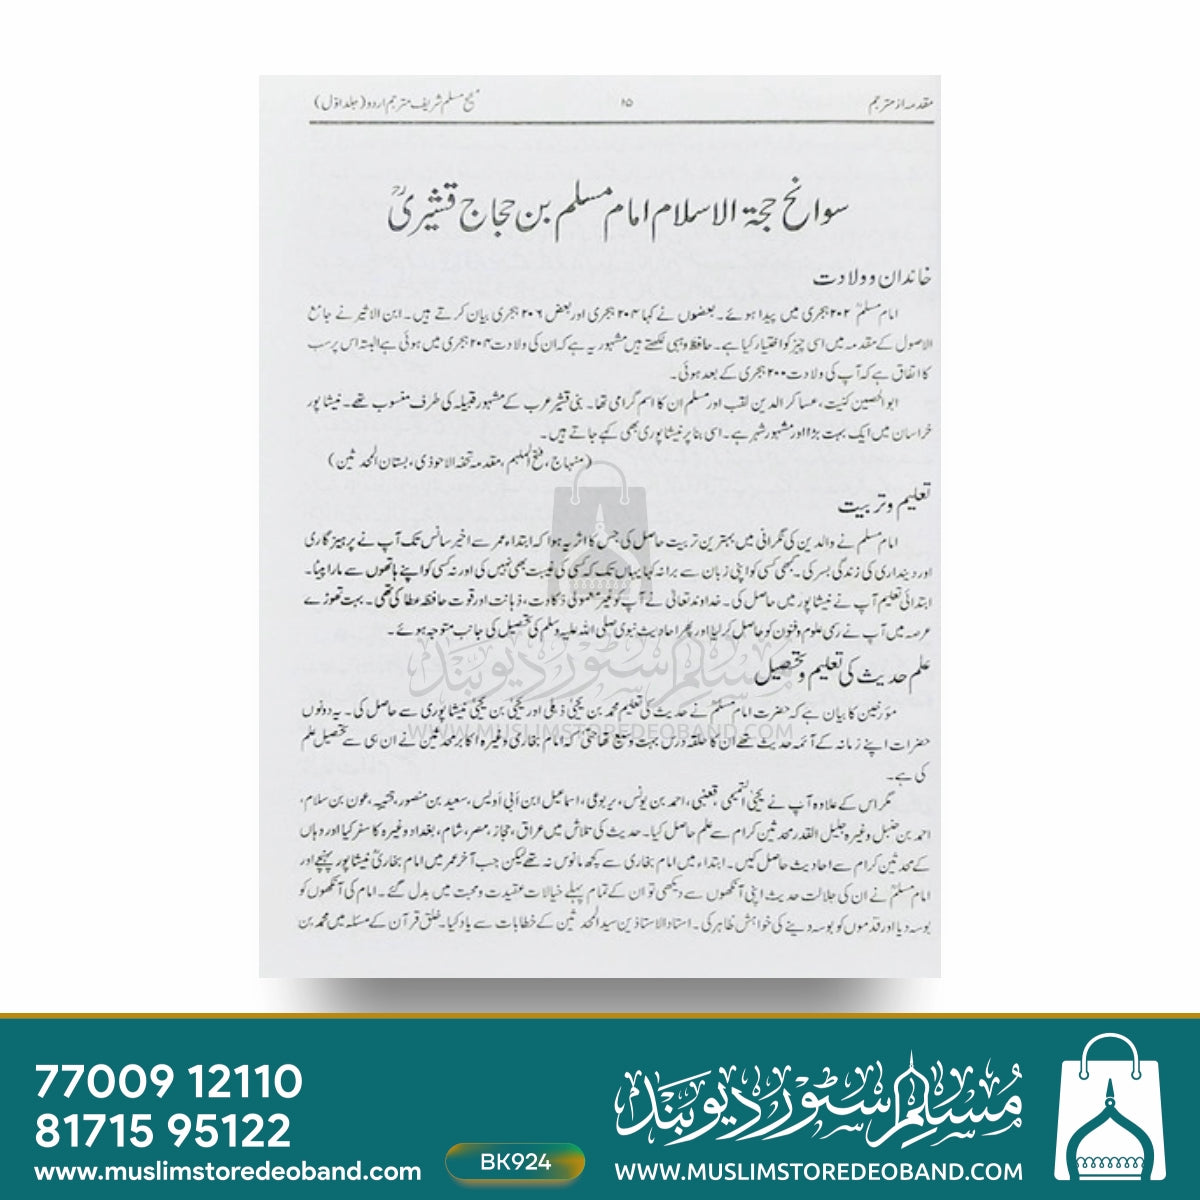 مقدمہ از مترجم ۱۵ صحیح مسلم شریف مترجم اردو (جلد اوّل)
سوانح حجۃ الاسلام امام مسلم بن حجاج قشیریؒ
خاندان و ولادت
امام مسلمؒ ۲۰۲ ہجری میں پیدا ہوئے۔ بعضوں نے کہا ۲۰۴ ہجری اور بعض ۲۰۶ ہجری بیان کرتے ہیں۔ ابن الاثیر نے جامع
الاصول کے مقدمہ میں اسی چیز کو اختیار کیا ہے۔ حافظ ذہبی لکھتے ہیں مشہور یہ ہے کہ ان کی ولادت ۲۰۴ ہجری میں ہوئی ہے البتہ اس پر سب
کا اتفاق ہے کہ آپ کی ولادت ۲۰۰ ہجری کے بعد ہوئی۔
ابوالحسین کنیت، عساکر الدین لقب اور مسلم ان کا اسم گرامی تھا۔ بنی قشیر عرب کے مشہور قبیلہ کی طرف منسوب تھے۔ نیشاپور
خراسان میں ایک بہت بڑا اور مشہور شہر ہے۔ اسی بنا پر نیشاپوری بھی کہے جاتے ہیں۔
(منہاج، فتح الملہم، مقدمہ تحفہ الاحوذی، بستان المحدثین)
تعلیم و تربیت
امام مسلم نے والدین کی نگرانی میں بہترین تربیت حاصل کی جس کا اثر یہ ہوا کہ ابتداء عمر سے اخیر سانس تک آپ نے پرہیزگاری
اور دینداری کی زندگی بسر کی۔ کبھی کسی کو اپنی زبان سے برا نہ کہا یہاں تک کہ کسی کی غیبت بھی نہیں کی اور نہ کسی کو اپنے ہاتھوں سے مارا پیٹا۔
ابتدائی تعلیم آپ نے نیشاپور میں حاصل کی۔ خداوند تعالیٰ نے آپ کو غیر معمولی ذکاوت، ذہانت اور قوت حافظہ عطا کی تھی۔ بہت تھوڑے
عرصہ میں آپ نے رسمی علوم و فنون کو حاصل کر لیا اور پھر احادیث نبوی صلی اللہ علیہ وسلم کی تحصیل کی جانب متوجہ ہوئے۔
علم حدیث کی تعلیم و تحصیل
مؤرخین کا بیان ہے کہ حضرت امام مسلمؒ نے حدیث کی تعلیم محمد بن یحییٰ ذہلی اور یحییٰ بن یحییٰ نیشاپوری سے حاصل کی۔ یہ دونوں
حضرات اپنے زمانہ کے آئمہ حدیث تھے ان کا حلقہ درس بہت وسیع تھا حتیٰ کہ امام بخاری وغیرہ اکابر محدثین نے ان ہی سے تحصیل علم
کی ہے۔
مگر اس کے علاوہ آپ نے یحییٰ التمیمی، قعنبی، احمد بن یونس، یربوعی، اسماعیل ابن ابی اویس، سعید بن منصور، قتیبہ، عون بن سلام،
احمد بن حنبل وغیرہ جلیل القدر محدثین کرام سے علم حاصل کیا۔ حدیث کی تلاش میں عراق، حجاز، مصر، شام، بغداد وغیرہ کا سفر کیا اور وہاں
کے محدثین کرام سے احادیث حاصل کیں۔ ابتداء میں امام بخاری سے کچھ مانوس نہ تھے لیکن جب آخر عمر میں امام بخاریؒ نیشاپور پہنچے اور
امام مسلمؒ نے ان کی جلالت حدیث اپنی آنکھوں سے دیکھی تو ان کے تمام پہلے خیالات عقیدت و محبت میں بدل گئے۔ امام کی آنکھوں کو
بوسہ دیا اور قدموں کو بوسہ دینے کی خواہش ظاہر کی۔ استاد الاستاذین سید المحدثین کے خطابات سے یاد کیا۔ خلق قرآن کے مسئلہ میں محمد بن
مسلم سٹور دیوبند
WWW.MUSLIMSTOREDEOBAND.COM
77009 12110
81715 95122
www.muslimstoredeoband.com
BK924
مسلم سٹور دیوبند
WWW.MUSLIMSTOREDEOBAND.COM